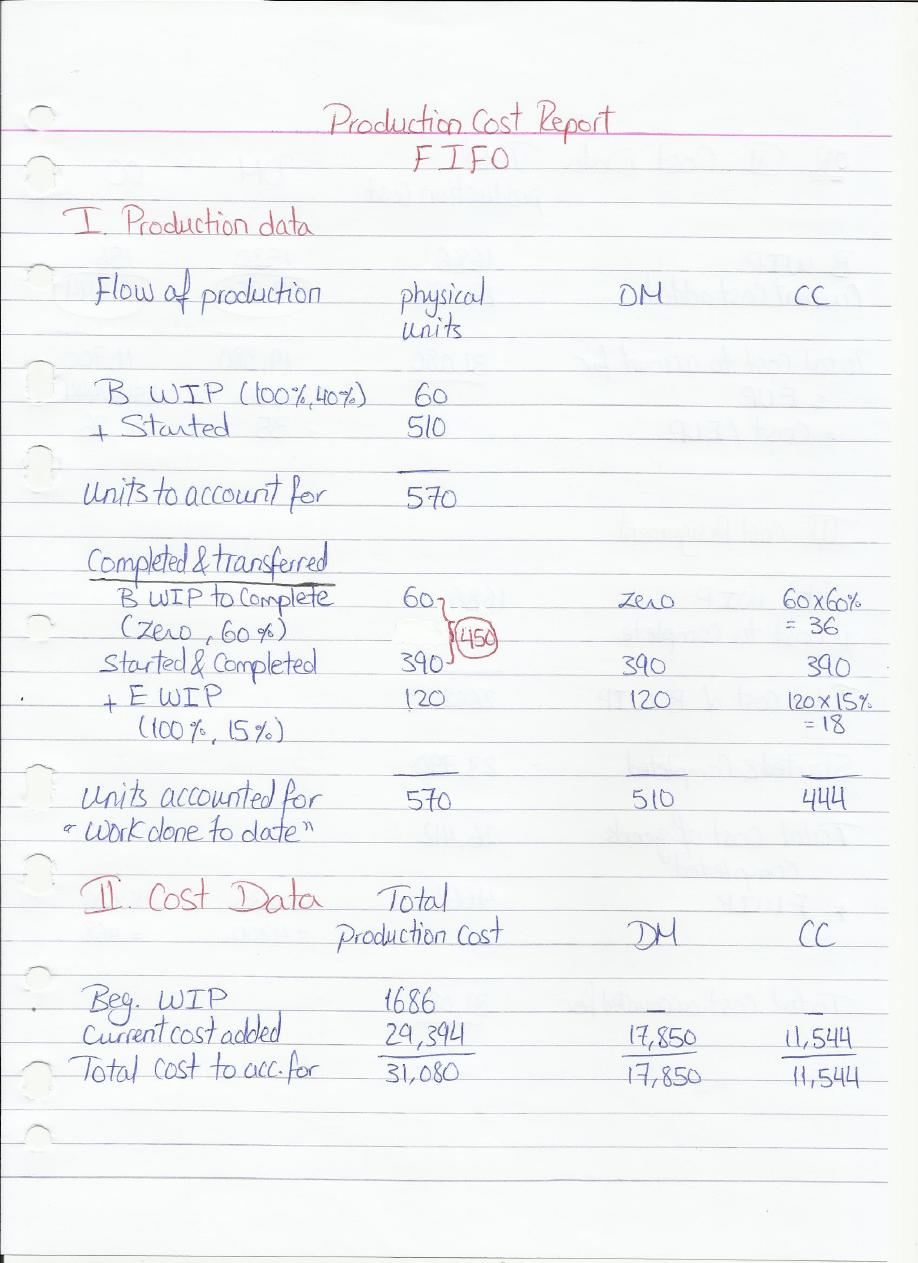 Production Cost Report
FIFO
I. Production data
Flow of production physical units DM CC
B WIP (100%, 40%) 60
+ Started 510
Units to account for 570
Completed & transferred
B WIP to Complete 60 zero 60x60%
(zero, 60%) 450 = 36
Started & Completed 390 390 390
+ E WIP 120 120 120 x 15%
(100%, 15%) = 18
Units accounted for 570 510 444
"Work done to date"
II. Cost Data Total
Production Cost DM CC
Beg. WIP 1686 _ _
Current cost added 29,394 17,850 11,544
Total cost to acc. for 31,080 17,850 11,544